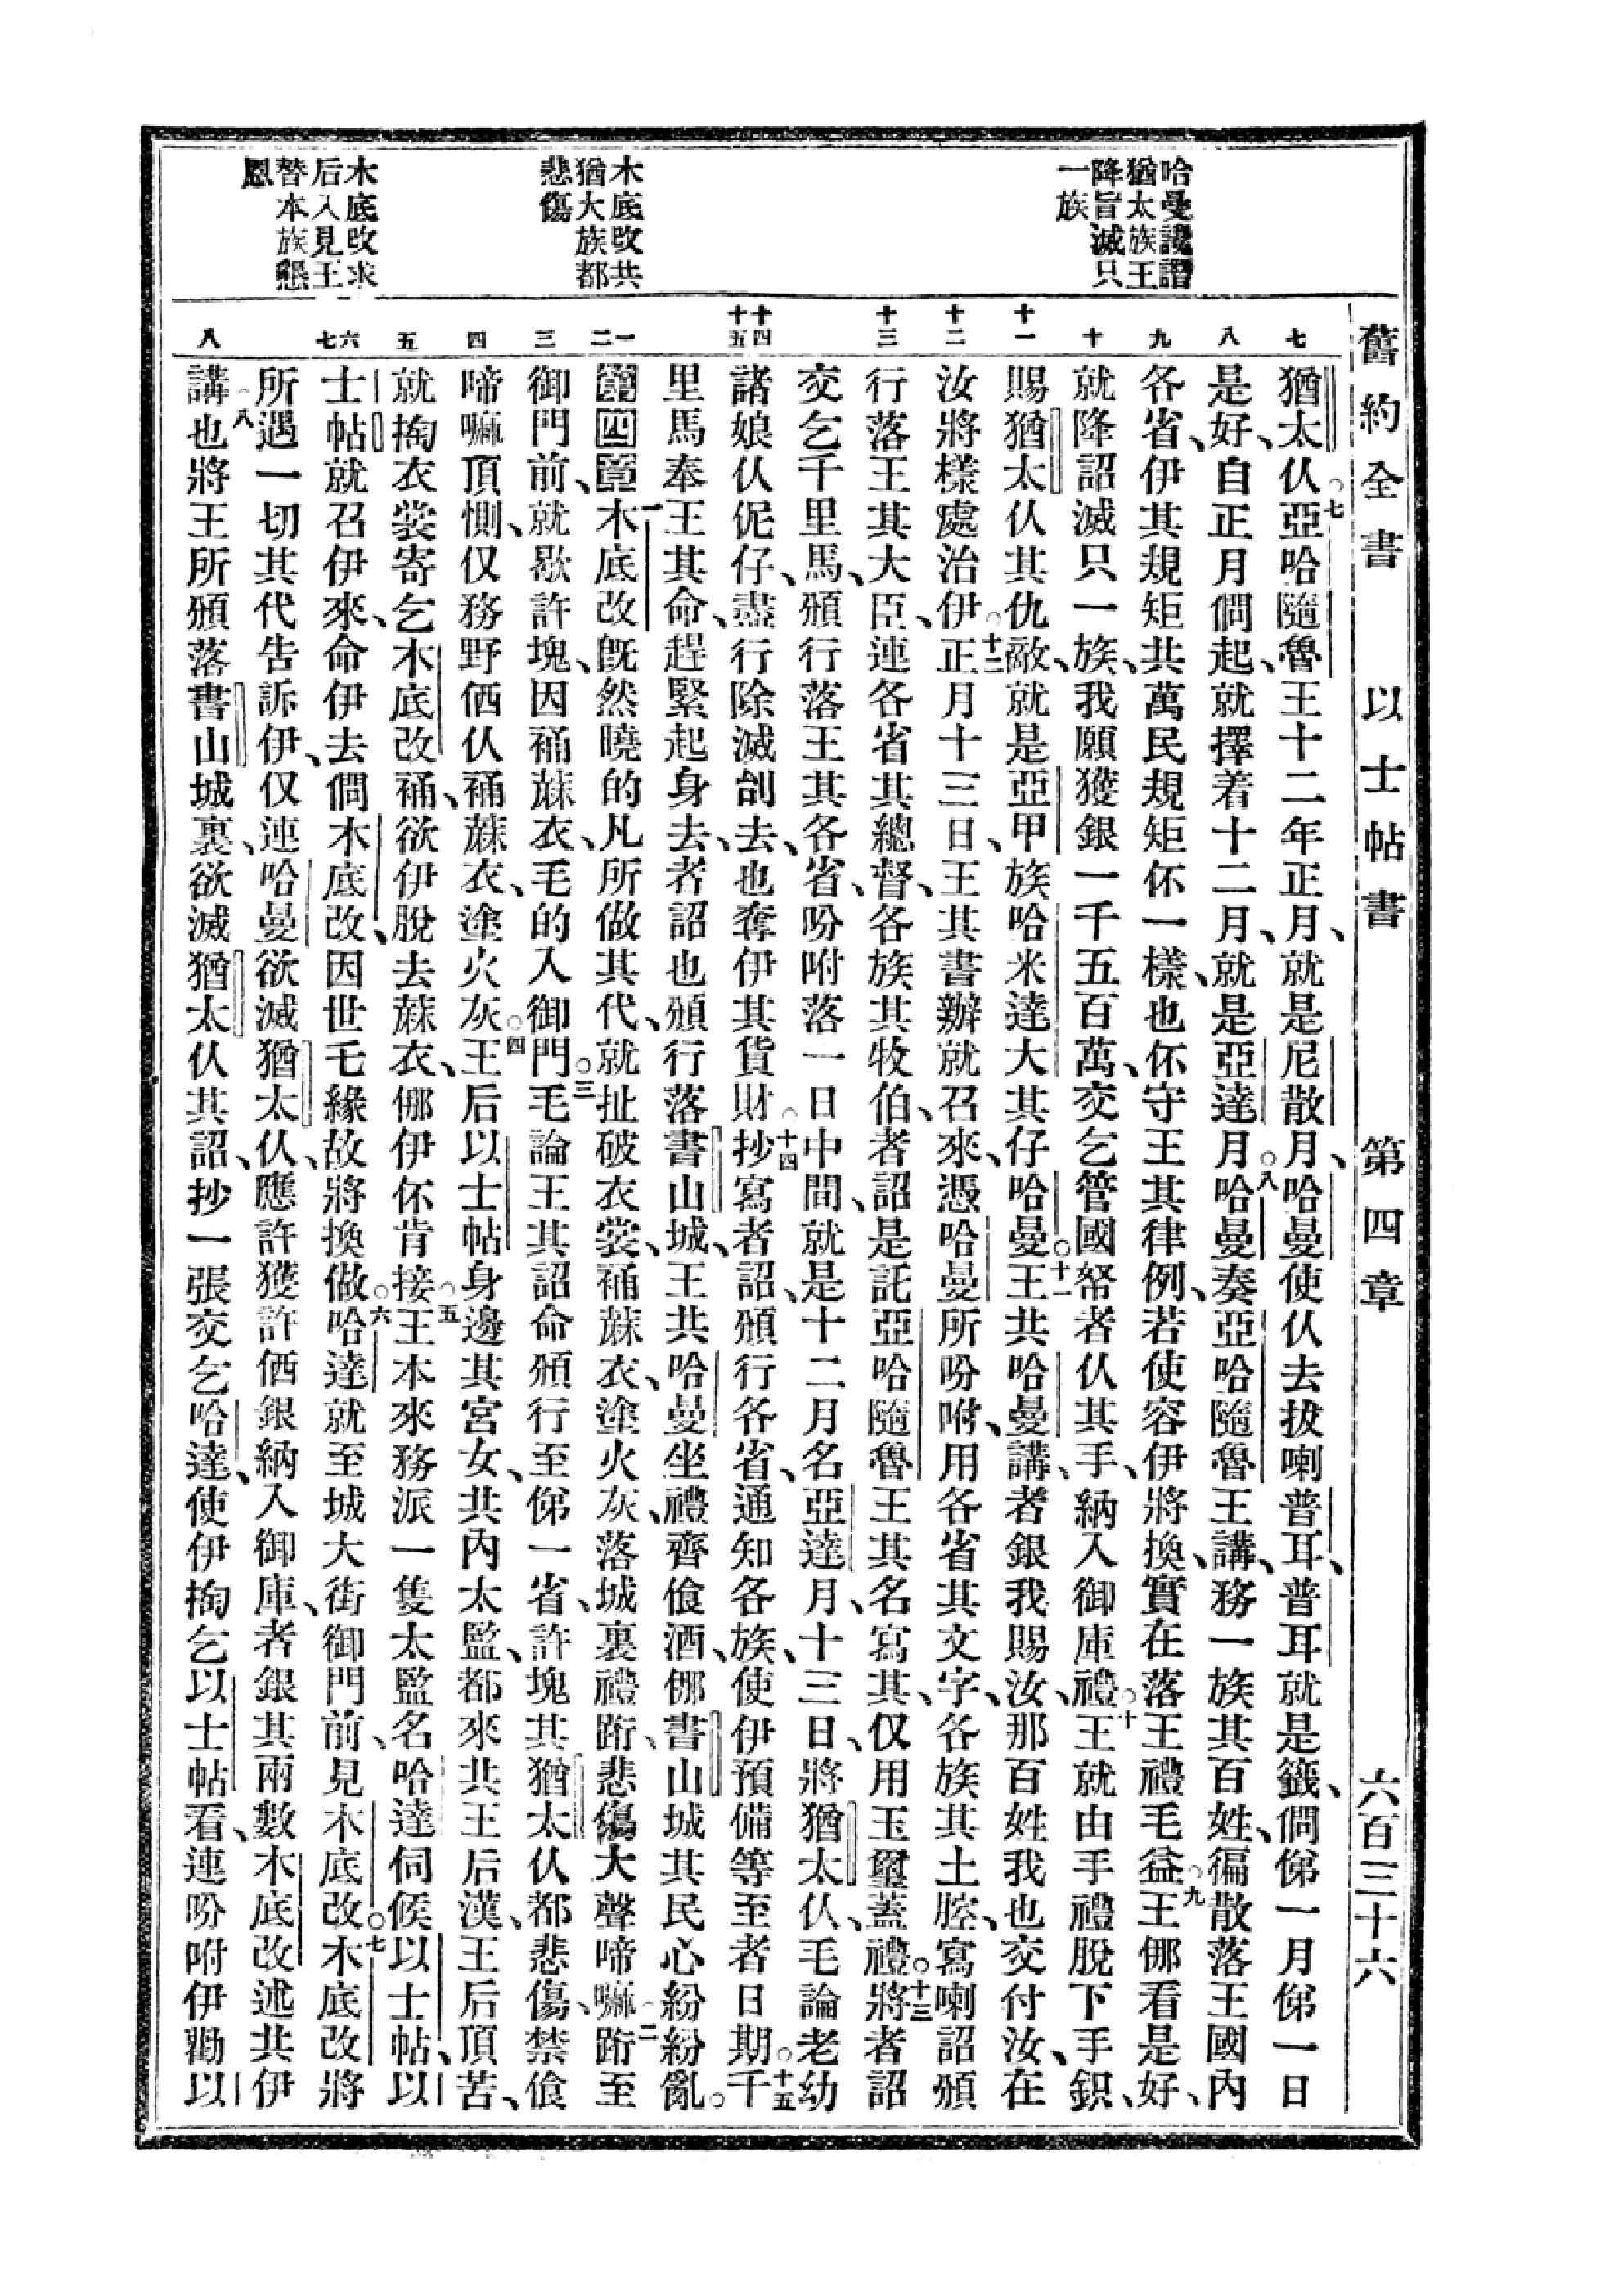 舊約全書 以士帖書 第四章 六百三十六
哈曼譏譖
猶太族王
降旨滅只
一族
木底改共
猶大族都
悲傷
木底改求
后入見王
替本族懇
恩
七 八 九 十 十一 十二 十三 十四 十五 一 二 三 四 五 六 七 八
猶太仈。七亞哈隨魯王十二年正月、就是尼散月、哈曼使仈去拔喇普耳、普耳就是籤、僩俤一月俤一日
是好、自正月僩起、就擇着十二月、就是亞達月。八哈曼奏亞哈隨魯王講、務一族其百姓、徧散落王國內
各省、伊其規矩共萬民規矩伓一樣、也伓守王其律例、若使容伊將換、實在落王禮毛益。九王㑚看是好、
就降詔滅只一族、我願獲銀一千五百萬、交乞管國帑者仈其手、納入御庫禮。十王就由手禮脫下手鉙、
賜猶太仈其仇敵、就是亞甲族哈米達大其仔哈曼。十一王共哈曼講、者銀我賜汝、那百姓我也交付汝、在
汝將樣處治伊。十二正月十三日、王其書辦就召來、憑哈曼所吩咐、用各省其文字、各族其土腔、寫喇詔頒
行落王其大臣、連各省其總督、各族其牧伯、者詔是託亞哈隨魯王其名寫其、仅用玉璽蓋禮。十三將者詔
交乞千里馬、頒行落王其各省、吩咐落一日中間、就是十二月名亞達月、十三日、將猶太仈、毛論老幼
諸娘仈伲仔、盡行除滅刣去、也奪伊其貨財。十四抄寫者詔、頒行各省、通知各族、使伊預備等至者日期。十五千
里馬奉王其命、趕緊起身去、者詔也頒行落書山城、王共哈曼坐禮齊飡酒、㑚書山城其民心紛紛亂。
第四章一木底改旣然曉的凡所做其代、就扯破衣裳、䘄蔴衣、塗火灰、落城裏禮跕、悲傷大聲啼嘛。二跕至
御門前、就歇許塊、因䘄蔴衣、毛的入御門。三毛論王其詔命頒行至俤一省、許塊其猶太仈都悲傷、禁飡
啼嘛頂惻、仅務野価仈䘄蔴衣、塗火灰。四王后以士帖身邊其宮女、共內太監、都來共王后漢、王后頂苦、
就掏衣裳寄乞木底改䘄、欲伊脫去蔴衣、㑚伊伓肯接。五王本來務派一隻太監名哈達伺候以士帖、以
士帖就召伊來、命伊去僩木底改、因世乇緣故將換做。六哈達就至城大街御門前、見木底改。七木底改將
所遇一切其代告訴伊、仅連哈曼欲滅猶太仈、應許獲許価銀納入御庫、者銀其兩數木底改述共伊
講。八也將王所頒落書山城裏、欲滅猶太仈其詔、抄一張交乞哈達、使伊掏乞以士帖看、連吩咐伊勸以